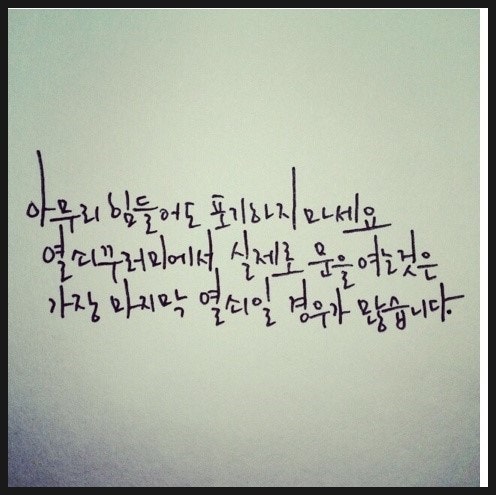 아무리 힘들어도 포기하지 마세요
열쇠꾸러미에서 실제로 문을 여는것은
가장 마지막 열쇠일 경우가 많습니다.